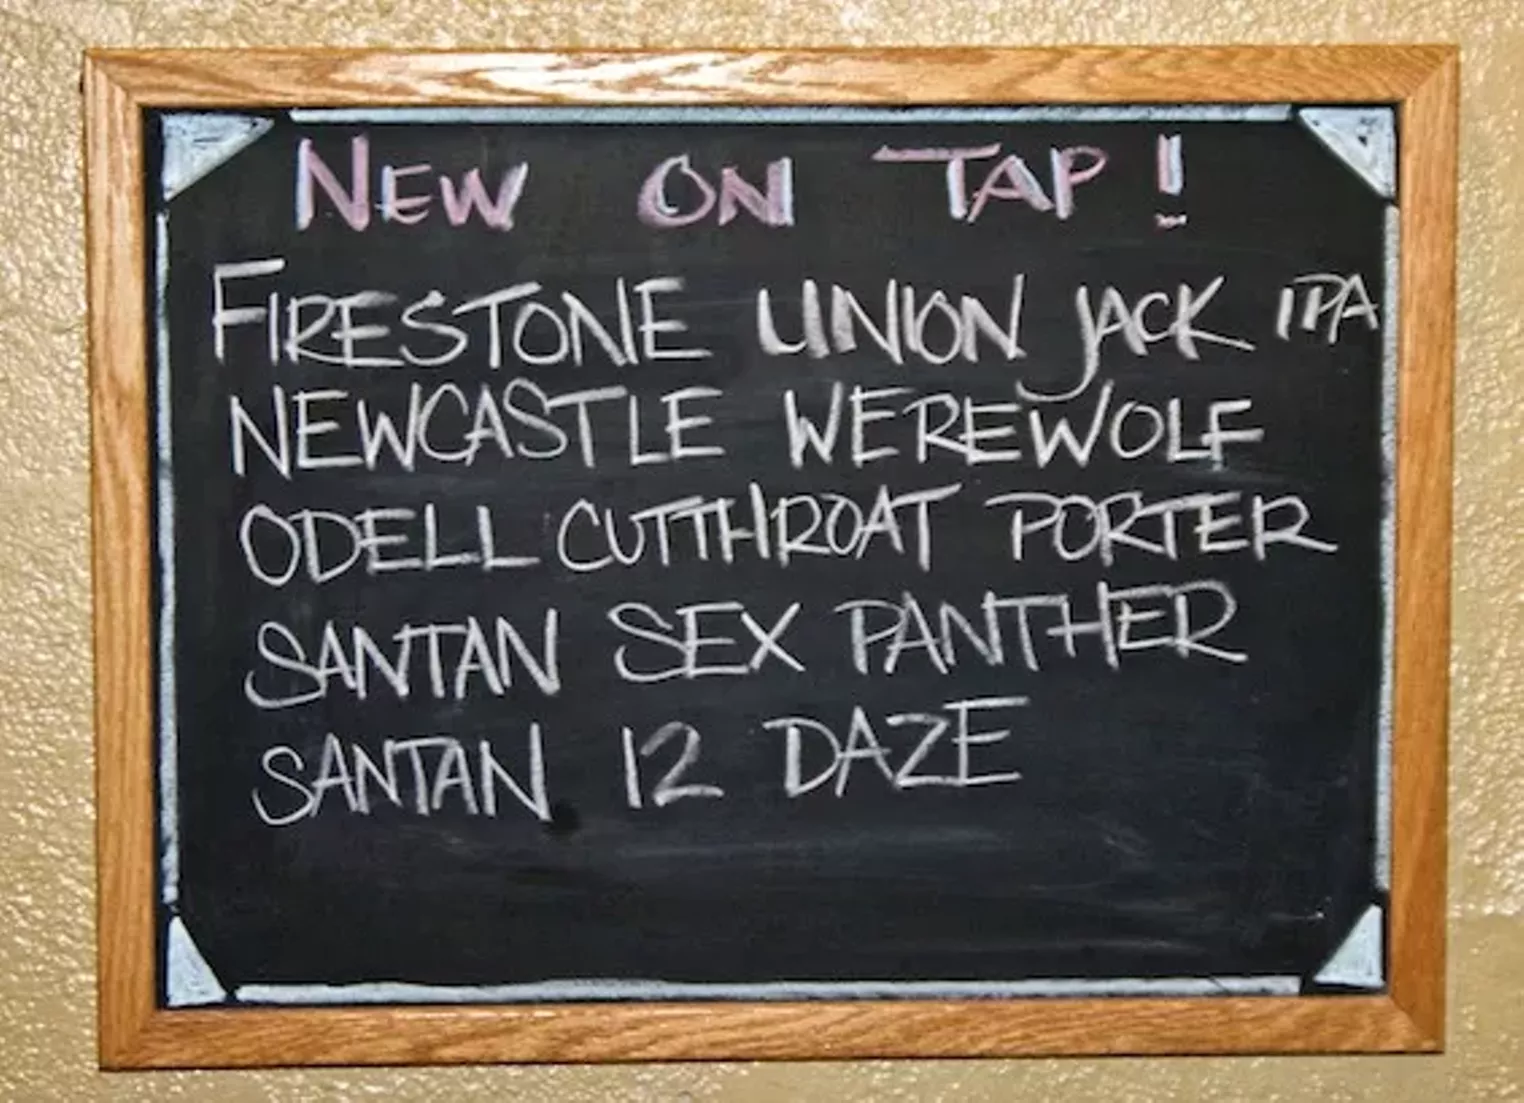 NEW ON TAP!
FIRESTONE UNION JACK IPA
NEWCASTLE WEREWOLF
ODELL CUTTHROAT PORTER
SANTAN SEX PANTHER
SANTAN 12 DAZE